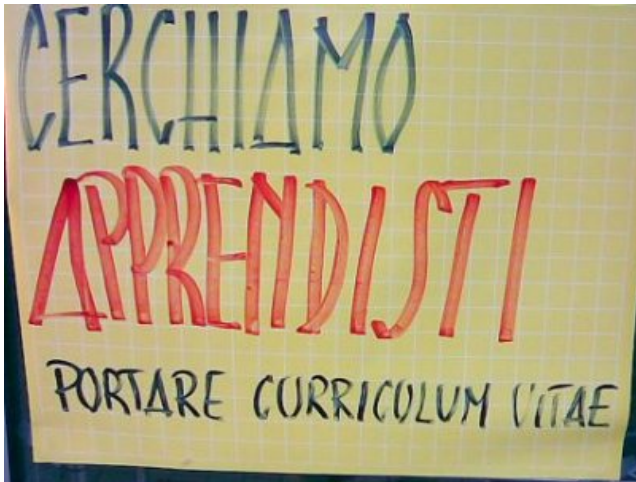 CERCHIAMO
APPRENDISTI
PORTARE CURRICULUM VITAE